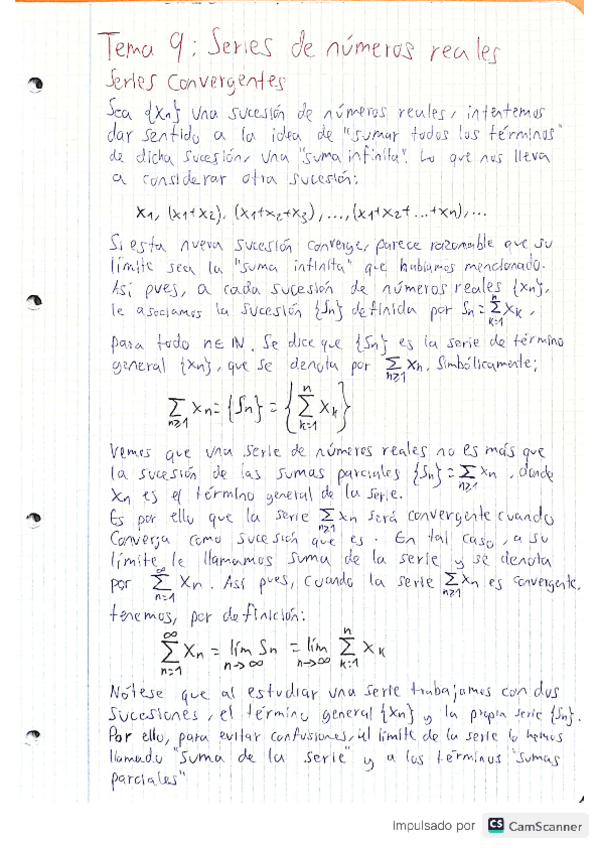 Tema 9: Series de números reales
Series Convergentes
Sea {Xn} una sucesión de números reales, intentemos
dar sentido a la idea de "sumar todos los términos"
de dicha sucesión, una "suma infinita". Lo que nos lleva
a considerar otra sucesión:
X1, (X1+X2), (X1+X2+X3), ..., (X1+X2+...+Xn), ...
Si esta nueva sucesión converge, parece razonable que su
límite sea la "suma infinita" que habíamos mencionado.
Así pues, a cada sucesión de números reales {Xn},
le asociamos la sucesión {Sn} definida por Sn = ∑_{k=1}^{n} Xk,
para todo n∈ℕ. Se dice que {Sn} es la serie de término
general {Xn}, que se denota por ∑_{n≥1} Xn. Simbólicamente;
∑_{n≥1} Xn = {Sn} = {∑_{k=1}^{n} Xk}
Vemos que una serie de números reales no es más que
la sucesión de las sumas parciales {Sn} = ∑_{n≥1} Xn, donde
Xn es el término general de la serie.
Es por ello que la serie ∑_{n≥1} Xn será convergente cuando
Converja como sucesión que es. En tal caso, a su
límite le llamamos suma de la serie y se denota
por ∑_{n=1}^{∞} Xn. Así pues, cuando la serie ∑_{n≥1} Xn es convergente,
tenemos, por definición:
∑_{n=1}^{∞} Xn = lím_{n→∞} Sn = lím_{n→∞} ∑_{k=1}^{n} Xk
Nótese que al estudiar una serie trabajamos con dos
sucesiones, el término general {Xn} y la propia serie {Sn}.
Por ello, para evitar confusiones, al límite de la serie lo hemos
llamado "suma de la serie" y a los términos "sumas
parciales"
Impulsado por CS CamScanner